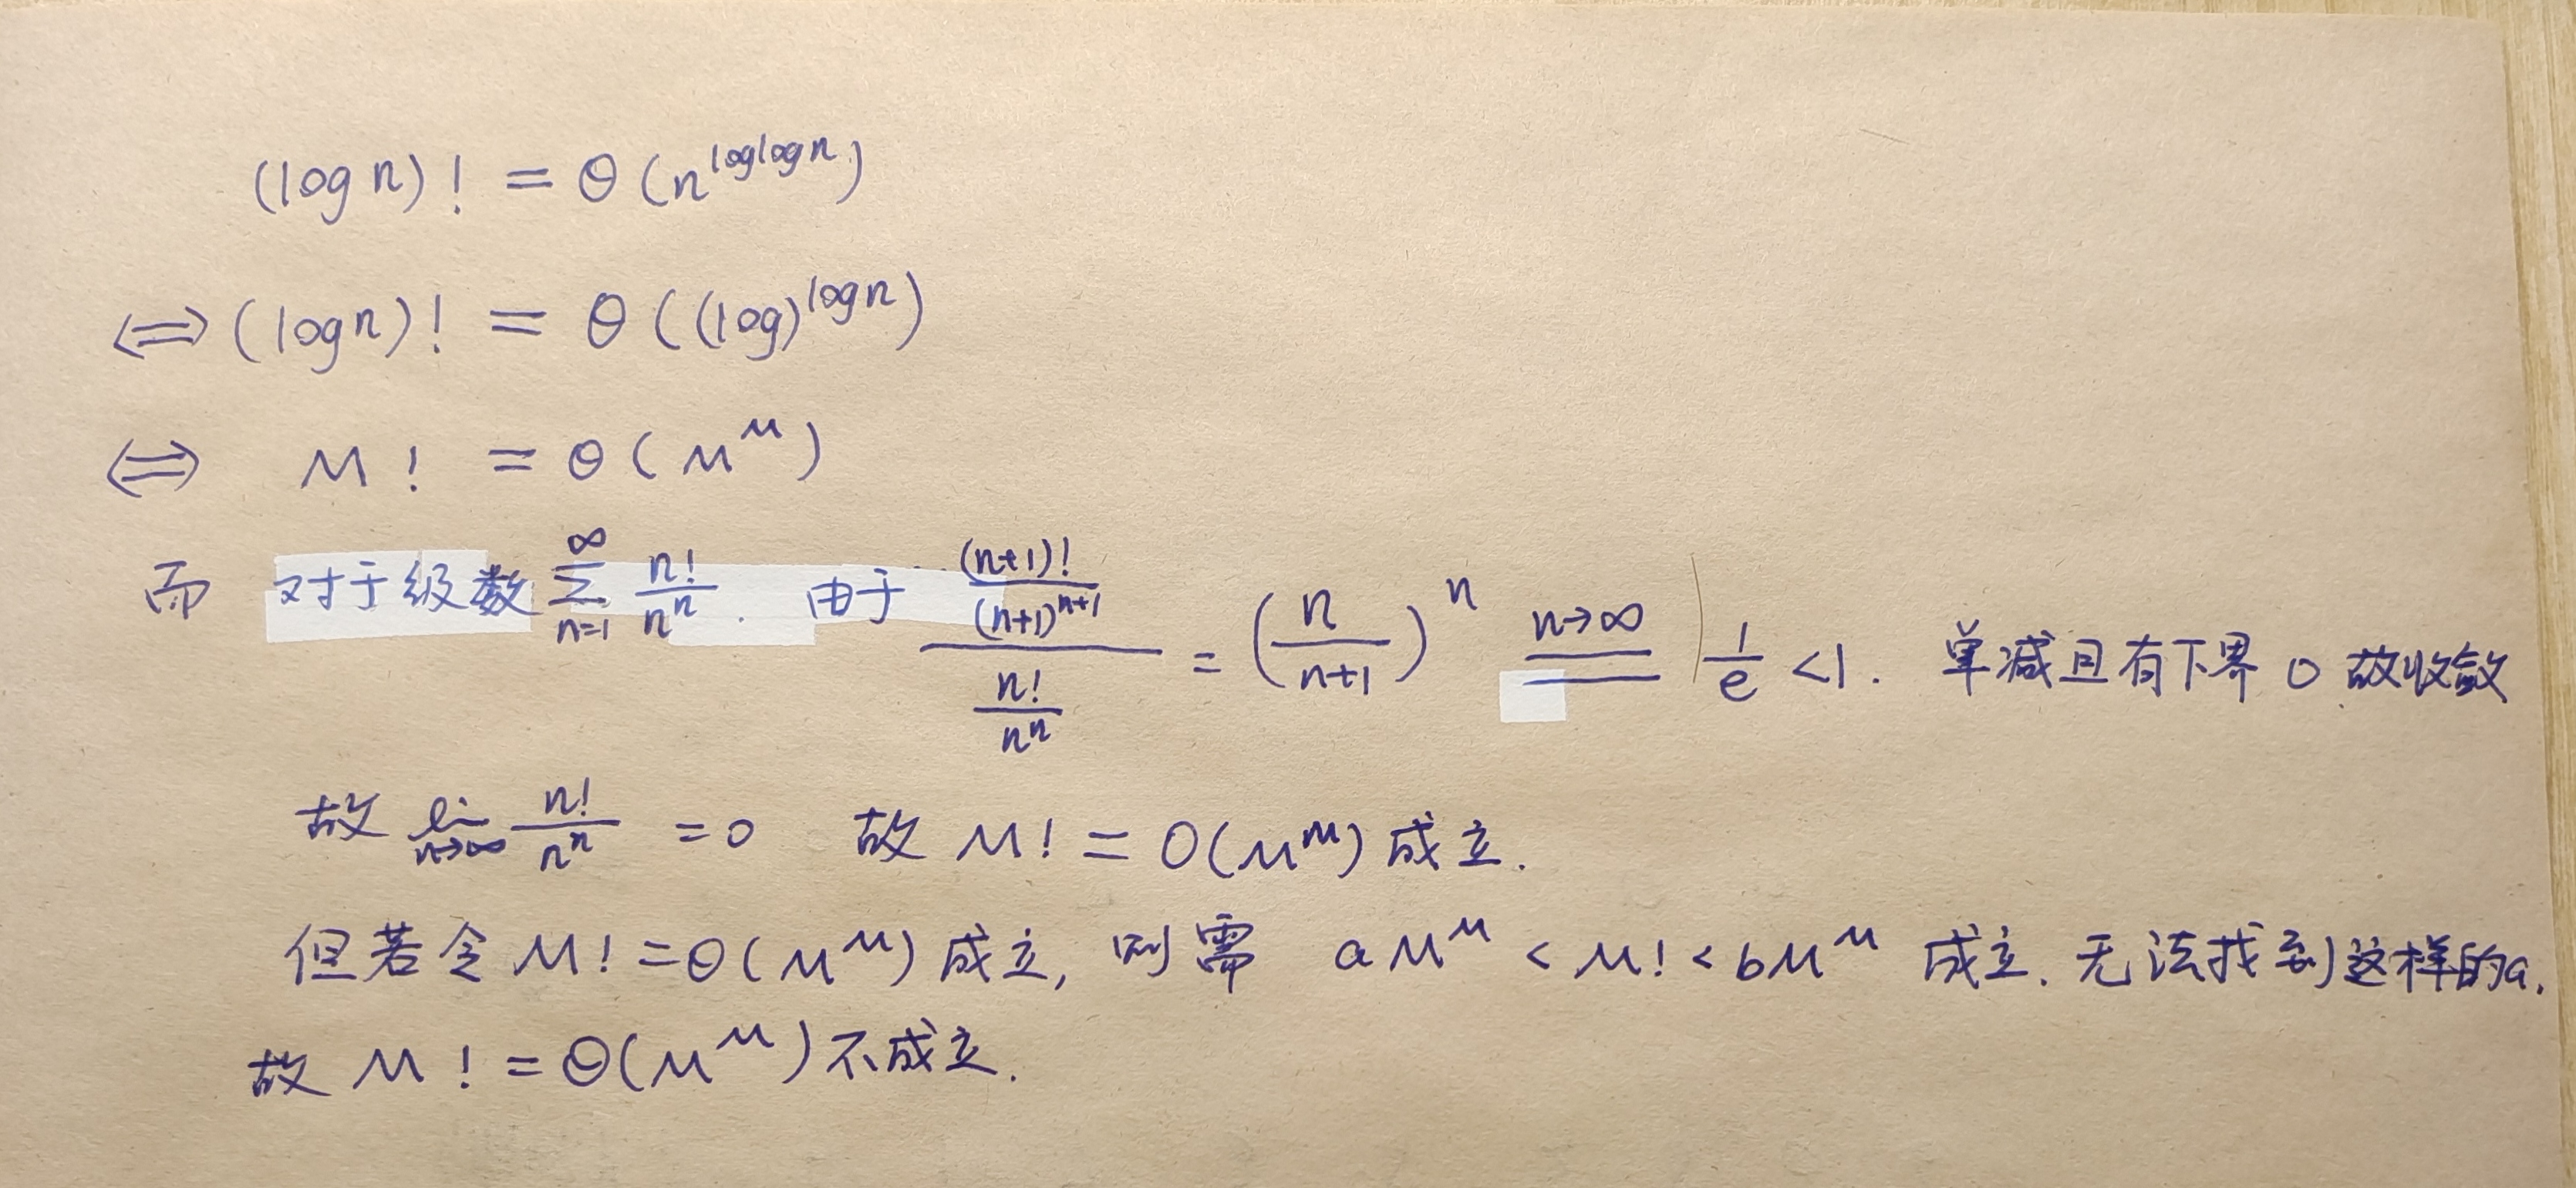 (log n)! = Θ(n^{loglog n})
⟺ (log n)! = Θ((log)^{log n})
⟺ M! = Θ(M^M)
而 对于级数 \sum_{n=1}^{∞} \frac{n!}{n^n}. 由于 \frac{\frac{(n+1)!}{(n+1)^{n+1}}}{\frac{n!}{n^n}} = (\frac{n}{n+1})^n \xlongequal{n→∞} \frac{1}{e} <1. 单减且有下界 0 故收敛
故 \lim_{n→∞} \frac{n!}{n^n} = 0 故 M! = O(M^M) 成立.
但若令 M! = Θ(M^M) 成立, 则需 aM^M < M! < bM^M 成立. 无法找到这样的a.
故 M! = Θ(M^M) 不成立.